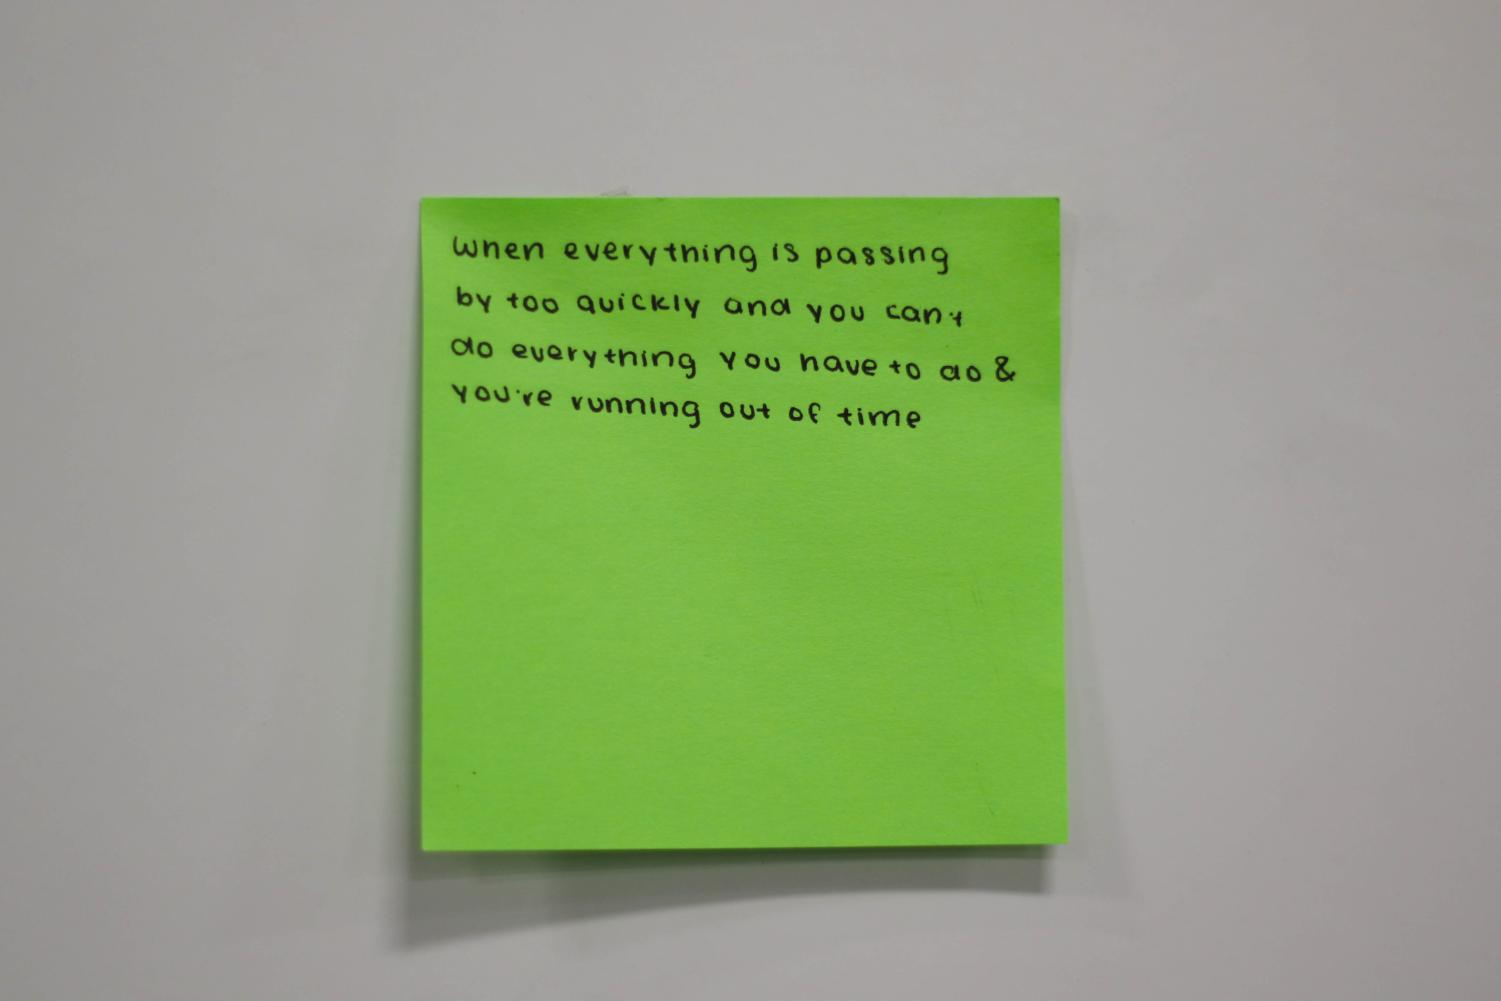 when everything is passing
by too quickly and you can't
do everything you have to do &
you're running out of time